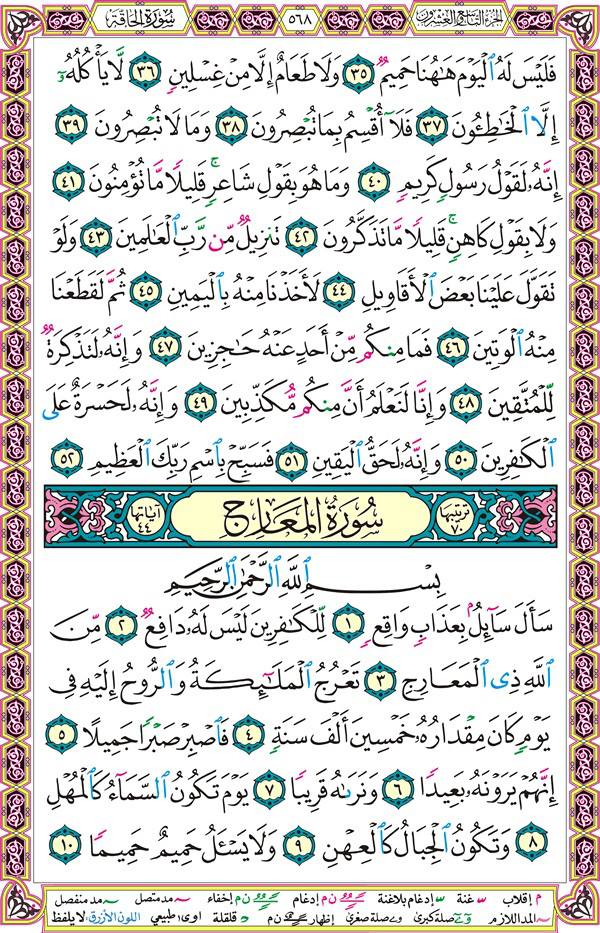 الجزء التاسع والعشرون ٥٦٨ سورة الحاقة
فَلَيْسَ لَهُ الْيَوْمَ هَٰهُنَا حَمِيمٌ ٣٥ وَلَا طَعَامٌ إِلَّا مِنْ غِسْلِينٍ ٣٦ لَّا يَأْكُلُهُ
إِلَّا الْخَٰطِـُٔونَ ٣٧ فَلَا أُقْسِمُ بِمَا تُبْصِرُونَ ٣٨ وَمَا لَا تُبْصِرُونَ ٣٩
إِنَّهُ لَقَوْلُ رَسُولٍ كَرِيمٍ ٤٠ وَمَا هُوَ بِقَوْلِ شَاعِرٍ ۚ قَلِيلًا مَّا تُؤْمِنُونَ ٤١
وَلَا بِقَوْلِ كَاهِنٍ ۚ قَلِيلًا مَّا تَذَكَّرُونَ ٤٢ تَنزِيلٌ مِّن رَّبِّ الْعَٰلَمِينَ ٤٣ وَلَوْ
تَقَوَّلَ عَلَيْنَا بَعْضَ الْأَقَاوِيلِ ٤٤ لَأَخَذْنَا مِنْهُ بِالْيَمِينِ ٤٥ ثُمَّ لَقَطَعْنَا
مِنْهُ الْوَتِينَ ٤٦ فَمَا مِنكُم مِّنْ أَحَدٍ عَنْهُ حَٰجِزِينَ ٤٧ وَإِنَّهُ لَتَذْكِرَةٌ
لِّلْمُتَّقِينَ ٤٨ وَإِنَّا لَنَعْلَمُ أَنَّ مِنكُم مُّكَذِّبِينَ ٤٩ وَإِنَّهُ لَحَسْرَةٌ عَلَى
الْكَٰفِرِينَ ٥٠ وَإِنَّهُ لَحَقُّ الْيَقِينِ ٥١ فَسَبِّحْ بِاسْمِ رَبِّكَ الْعَظِيمِ ٥٢
ترتيبها ٧٠ سُورَةُ الْمَعَارِجِ آياتها ٤٤
بِسْمِ اللَّهِ الرَّحْمَٰنِ الرَّحِيمِ
سَأَلَ سَآئِلٌ بِعَذَابٍ وَاقِعٍ ١ لِّلْكَٰفِرِينَ لَيْسَ لَهُ دَافِعٌ ٢ مِّنَ
اللَّهِ ذِي الْمَعَارِجِ ٣ تَعْرُجُ الْمَلَٰٓئِكَةُ وَالرُّوحُ إِلَيْهِ فِي
يَوْمٍ كَانَ مِقْدَارُهُ خَمْسِينَ أَلْفَ سَنَةٍ ٤ فَاصْبِرْ صَبْرًا جَمِيلًا ٥
إِنَّهُمْ يَرَوْنَهُ بَعِيدًا ٦ وَنَرَىٰهُ قَرِيبًا ٧ يَوْمَ تَكُونُ السَّمَآءُ كَالْمُهْلِ
٨ وَتَكُونُ الْجِبَالُ كَالْعِهْنِ ٩ وَلَا يَسْـَٔلُ حَمِيمٌ حَمِيمًا ١٠
م إقلاب غنة إدغام بلاغنة ن م إدغام ن م إخفاء مد متصل مد منفصل
المد اللازم صلة كبرى صلة صغرى إظهار ن م قلقلة اوى طبيعي اللون الأزرق لا يلفظ